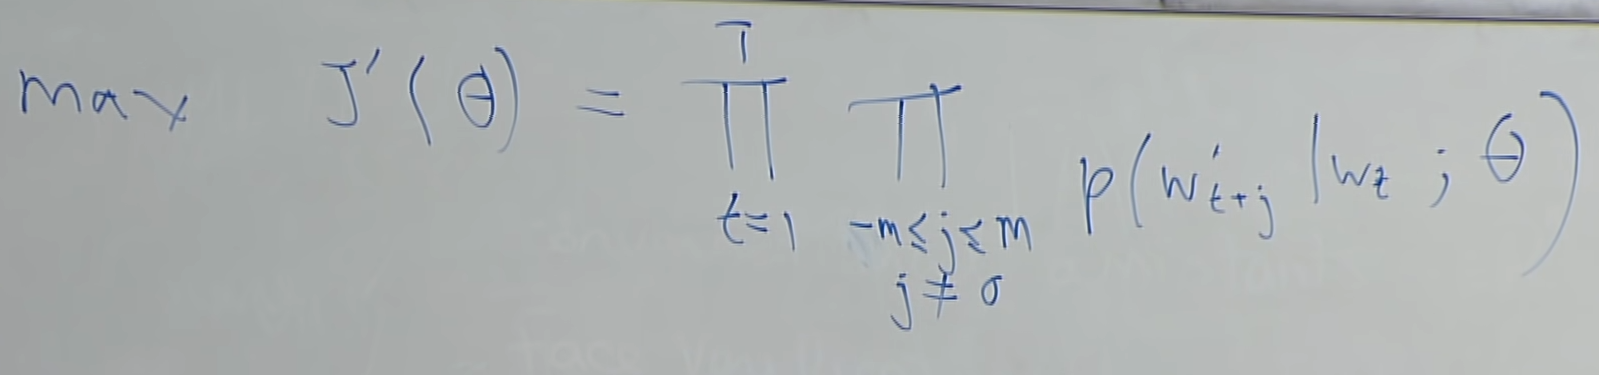 max J'(θ) = ∏_{t=1}^{T} ∏_{-m≤j≤m, j≠0} p(w'_{t+j} | w_t ; θ)